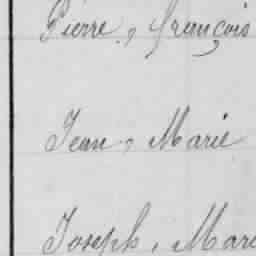 Pierre, françois
Jean, Marie
Joseph, Mari